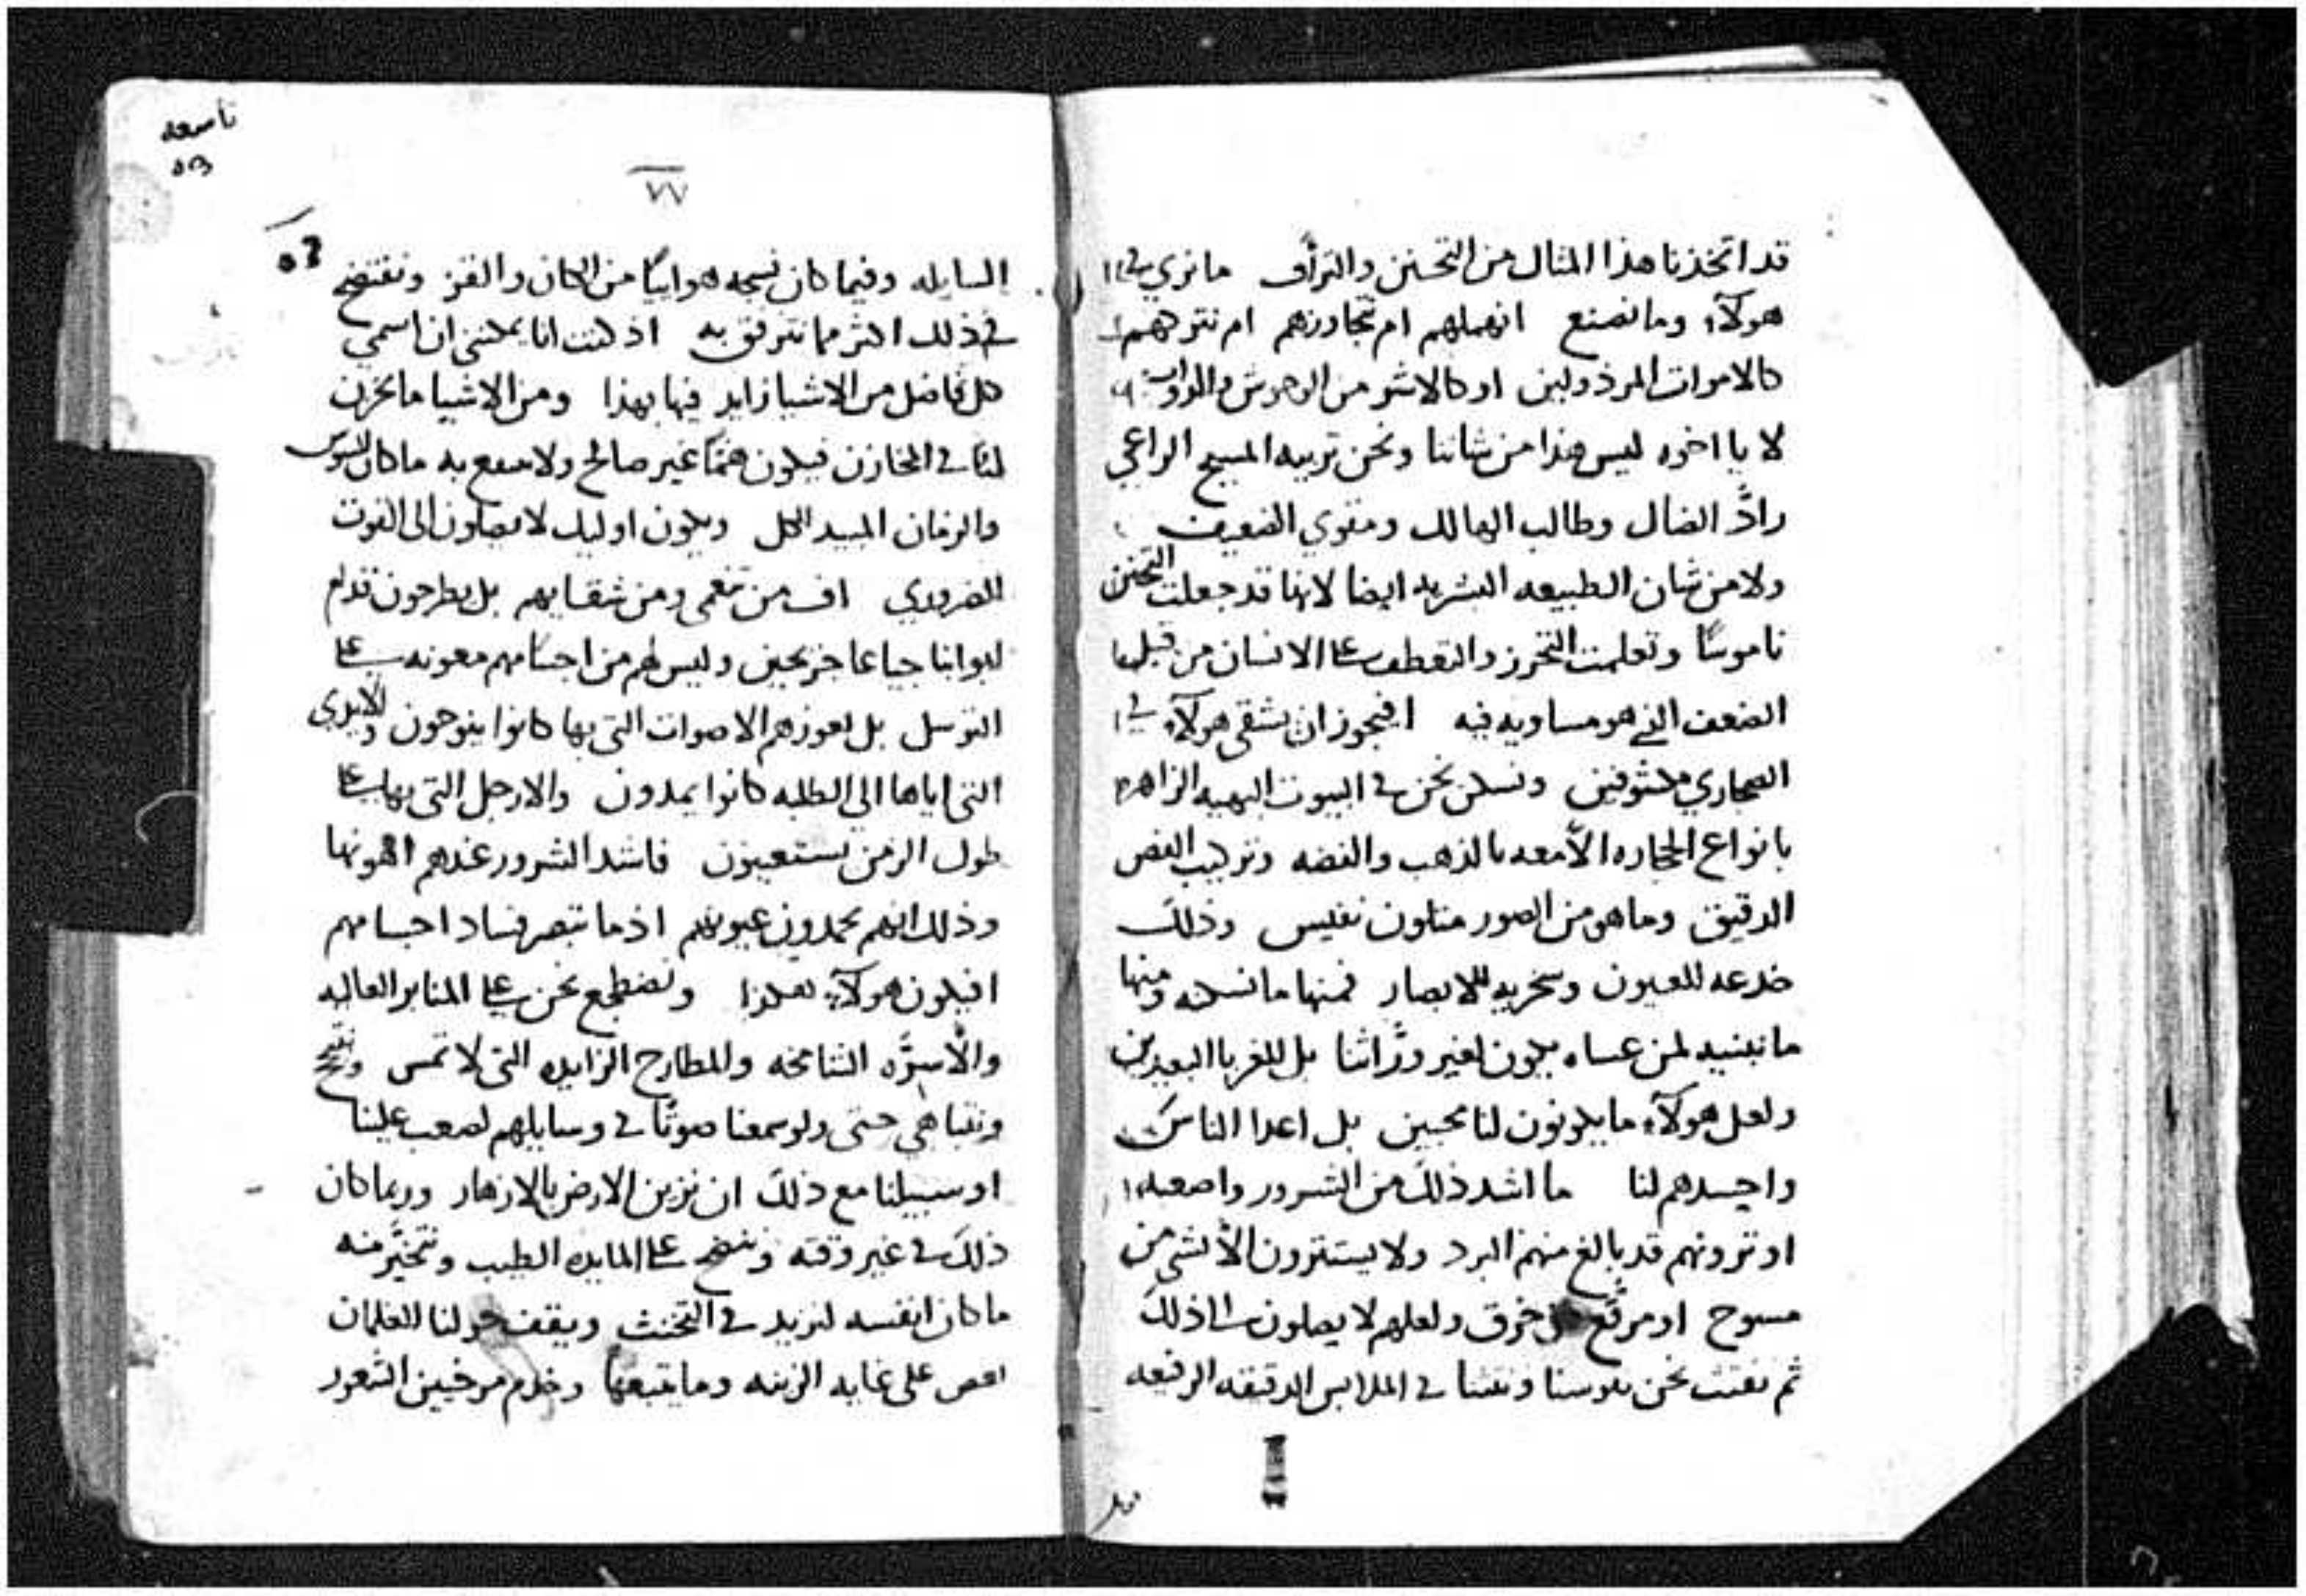 قد اتخذنا هذا المثال من التحنن والترأف ما نري في
هولآء وما نصنع انهملهم ام نتجاوزهم ام نتركهم
كالاموات المرذولين او كالاشر من الوحوش والدواب
لا يا اخوه ليس هذا من شاننا ونحن تربيه المسيح الراعي
رادّ الضال وطالب الهالك ومقوي الضعيف
ولا من شان الطبيعه البشريه ايضا لانها قد جعلت التحنن
ناموسًا وتعلمت التحرز والتعطف على الانسان من قبل
الضعف الذي هو مساويه فيه افيجوز ان يشقى هولآء في
الصحاري مكشوفين ونسكن نحن في البيوت البهيه الزاهره
بانواع الحجاره الآمعه بالذهب والفضه وتركيب الفص
الدقيق وما هو من الصور متلون نفيس وذلك
خدعه للعيون وسخريه للابصار فمنها ما نسكنه ومنها
ما نبنيه لمن عساه يكون لغير ورَّاثنا بل للغربا البعيدين
ولعل هولآء ما يكونون لنا محبين بل اعدا الناس
واحسدهم لنا ما اشد ذلك من الشرور واصعبه
او ترونهم قد بالغ منهم البرد ولا يستترون الّا بشي من
مسوح او مرقَّع خرق ولعلهم لا يصلون الى ذلك
ثم نفتت نحن نفوسنا في الملابس الدقيقه الرفيعه
تاسعه
٧٧
السايله وفيما كان نسجه هوائيًا من الكتان والقز ونفتضح
في ذلك اكثر مما نترفق به اذ كنت انا يمكنني ان اسمي
كل فاضل من الاشيا زايد فيها بهذا ومن الاشيا ما يخزن
لنا في المخازن فيكون همًّا غير صالح ولا منفع به ما كان للسوس
والزمان المبيد الكل ويكون اوليك لا يصلون الى القوت
الضروري اف من تنعمي ومن شقايهم بل يطرحون قدام
ابوابنا جياعا جزيحين وليس لهم من اجسامهم معونه على
التوسل بل تعوزهم الاصوات التي بها كانوا ينوحون والايدى
التى اياها الى الطلبه كانوا يمدون والارجل التى بها على
طول الزمن يستعينون فاشد الشرور عندهم اهونها
وذلك انهم يحمدون عيونهم اذ ما تبصر فساد اجسامهم
افيكون هولآء هكذا ونضطجع نحن على المنابر العاليه
والأسرَّه الشامخه والمطارح الزايده التى لا تمس
ونتباهي حتى ولو سمعنا صوتًا في وسايلهم لصعب علينا
او سبيلنا مع ذلك ان نزين الارض بالازهار وربما كان
ذلك في غير وقته وننضح على المايده الطيب ونتخيَّر منه
ما كان انفسه لنزيد في التخنث ويقف حولنا الغلمان
على غايه الزينه وما يتبعها وخدم مرخيين الشعور